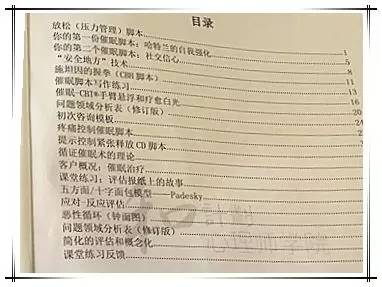 目录
放松（压力管理）脚本
你的第一份催眠脚本：哈特兰的自我强化 1
你的第二个催眠脚本：社交信心 5
“安全地方”技术 8
施坦因的握拳（CBH 脚本） 11
催眠脚本写作练习 13
催眠-CBT®手臂悬浮和疗愈白光 16
问题领域分析表（修订版） 20
初次咨询模板 24
疼痛控制催眠脚本
提示控制紧张释放 CD 脚本
循证催眠术的理论
客户概况：催眠治疗
课堂练习：评估报纸上的故事
五方面/十字面包模型——Padesky
应对-反应评估
恶性循环（转面图）
问题领域分析表（修订版）
简化的评估和概念化
课堂练习反馈
计划
心理师学院